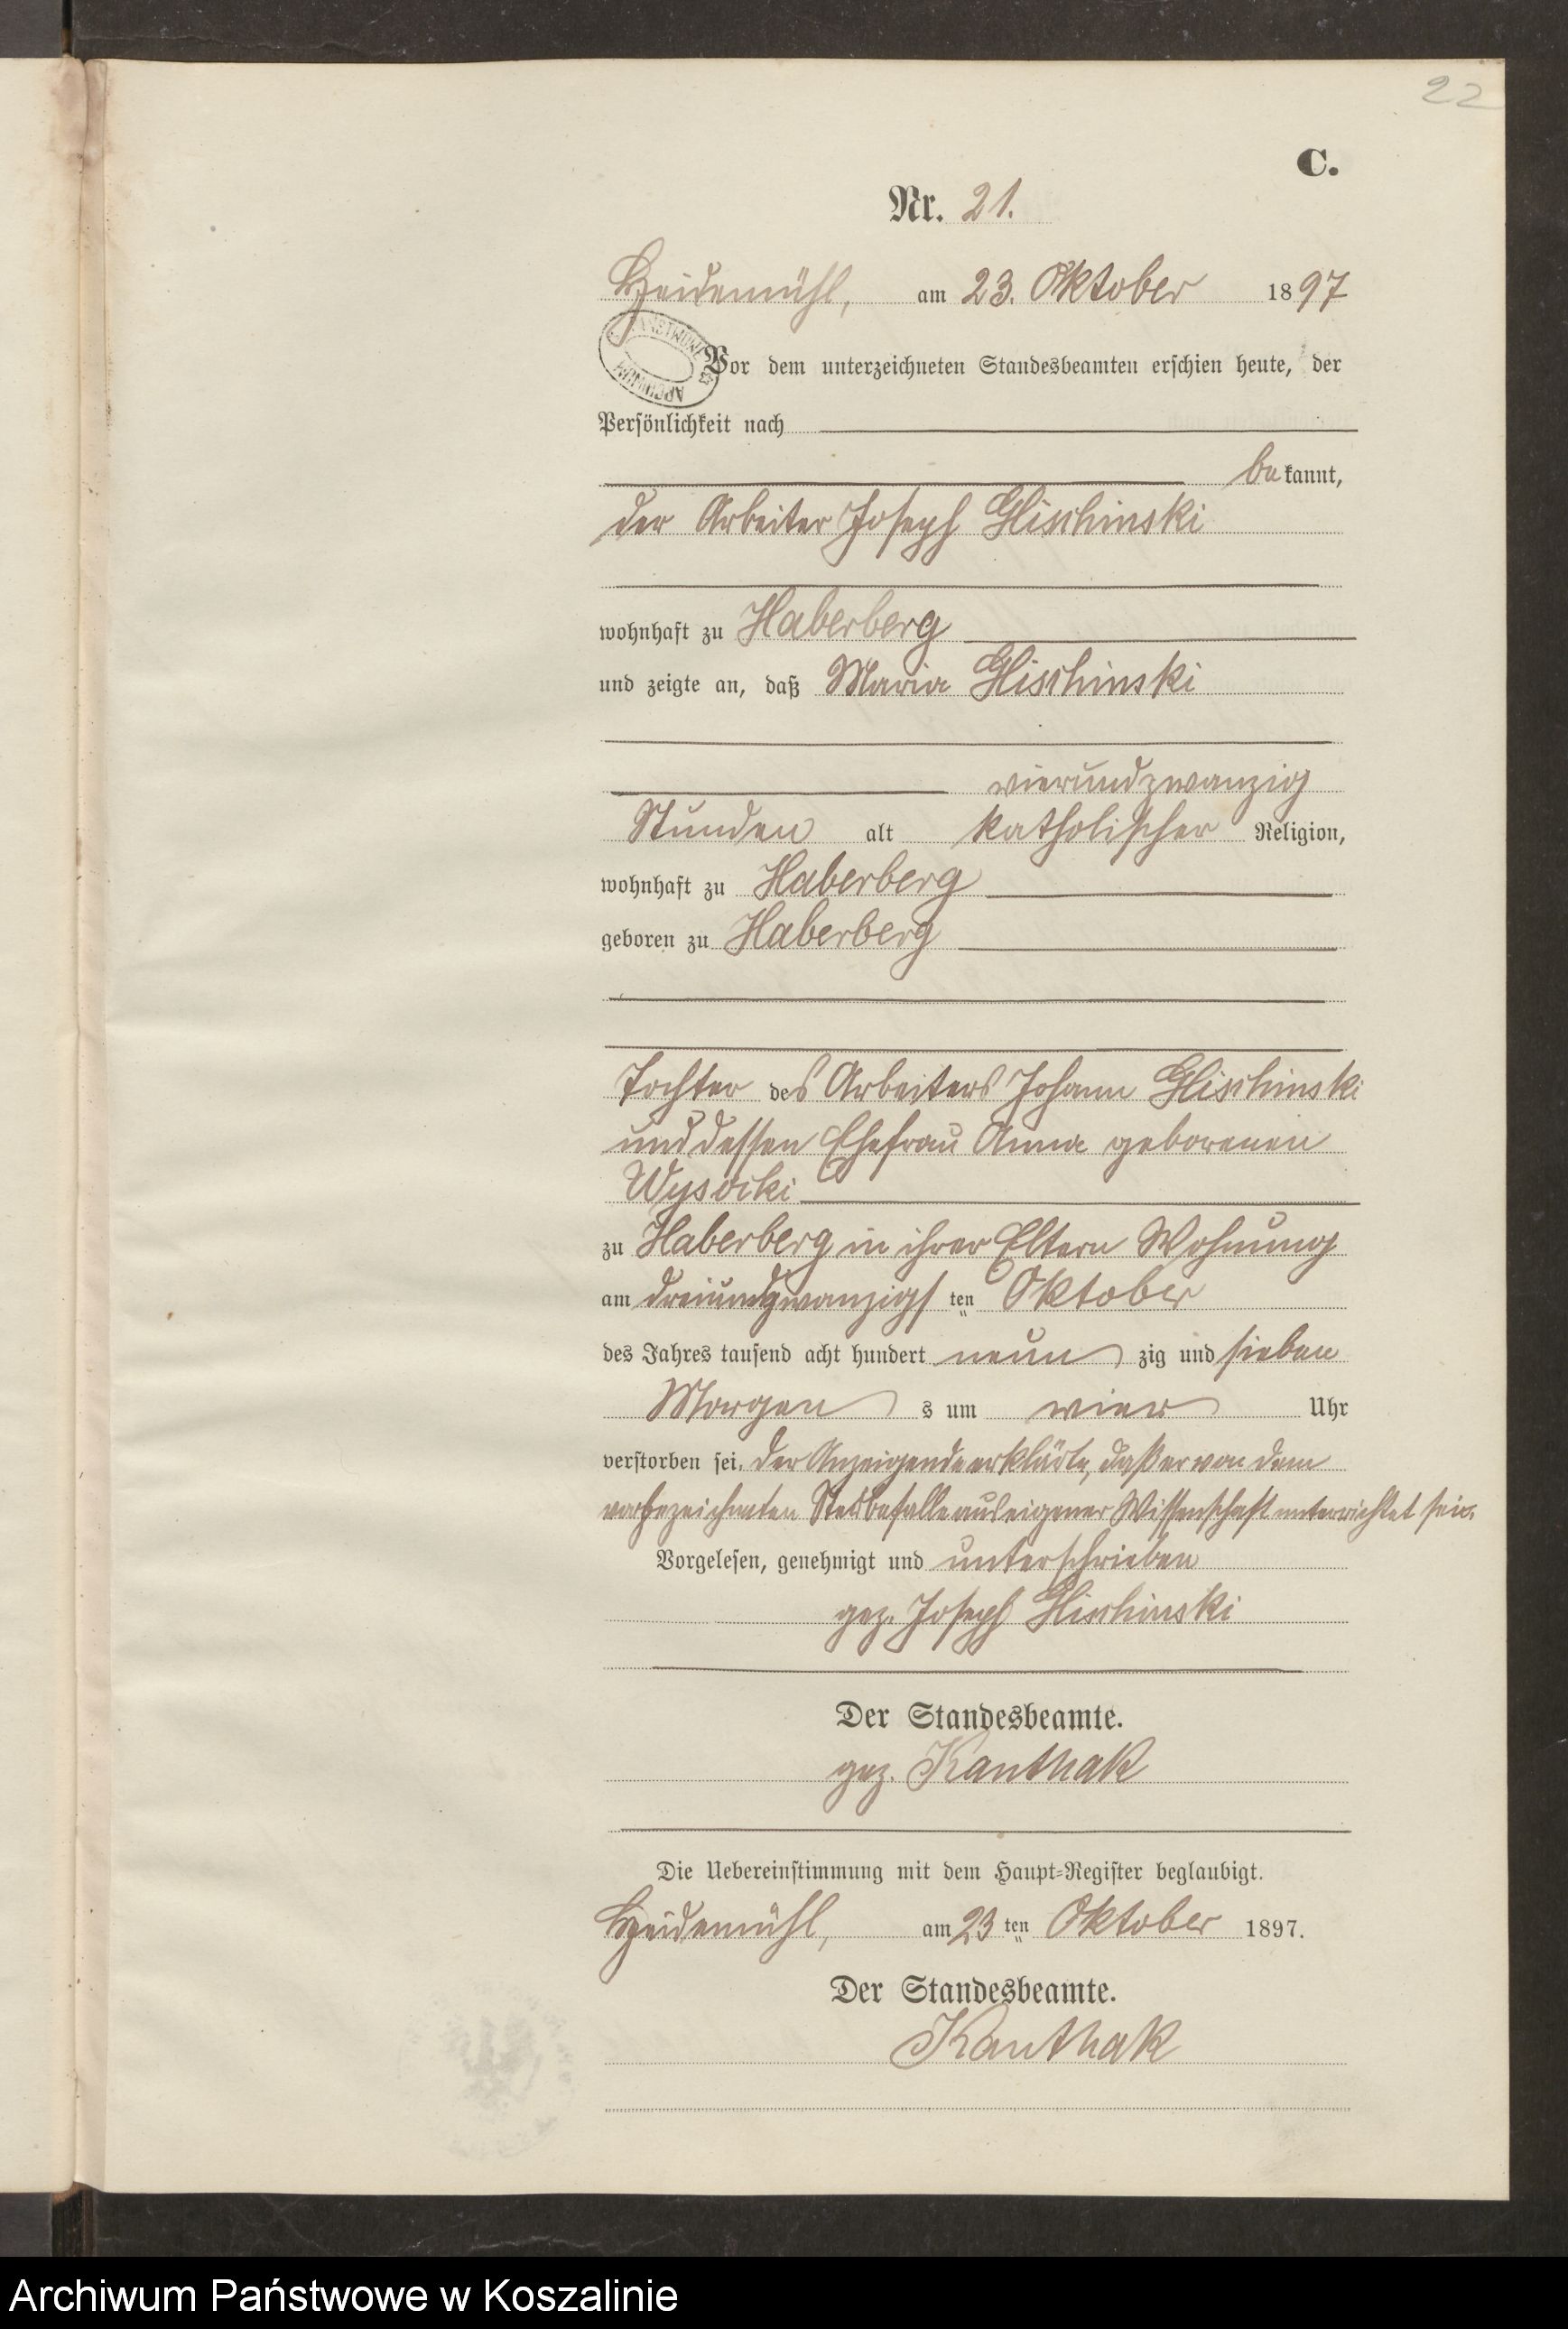 22
C.
Nr. 21.
Heidemühl, am 23. Oktober 1897
Vor dem unterzeichneten Standesbeamten erschien heute, der
Persönlichkeit nach
bekannt,
der Arbeiter Joseph Glischinski
wohnhaft zu Haberberg
und zeigte an, daß Maria Glischinski
vierundzwanzig
Stunden alt katholischer Religion,
wohnhaft zu Haberberg
geboren zu Haberberg
Tochter des Arbeiters Johann Glischinski
und dessen Ehefrau Anna geborenen
Wysocki
zu Haberberg in ihrer Eltern Wohnung
am dreiundzwanzigsten Oktober
des Jahres tausend acht hundert neunzig und sieben
Morgens um vier Uhr
verstorben sei. Der Anzeigende erklärte, daß er von dem
vorbezeichneten Sterbefalle aus eigener Wissenschaft unterrichtet sei.
Vorgelesen, genehmigt und unterschrieben
gez. Joseph Glischinski
Der Standesbeamte.
gez. Kanthak
Die Uebereinstimmung mit dem Haupt-Register beglaubigt.
Heidemühl, am 23ten Oktober 1897.
Der Standesbeamte.
Kanthak
Archiwum Państwowe w Koszalinie